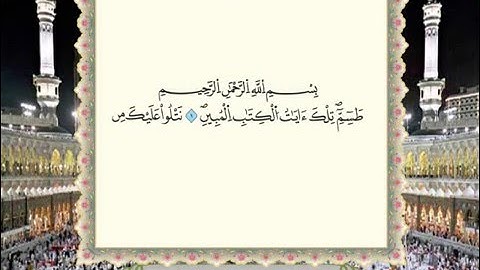 بِسْمِ اِ۬للَّهِ اِ۬لرَّحْمَٰنِ اِ۬لرَّحِيمِ
طَسِٓمِّٓ تِلْكَ ءَايَٰتُ اُ۬لْكِتَٰبِ اِ۬لْمُبِينِۖ ١ نَتْلُواْ عَلَيْكَ مِن